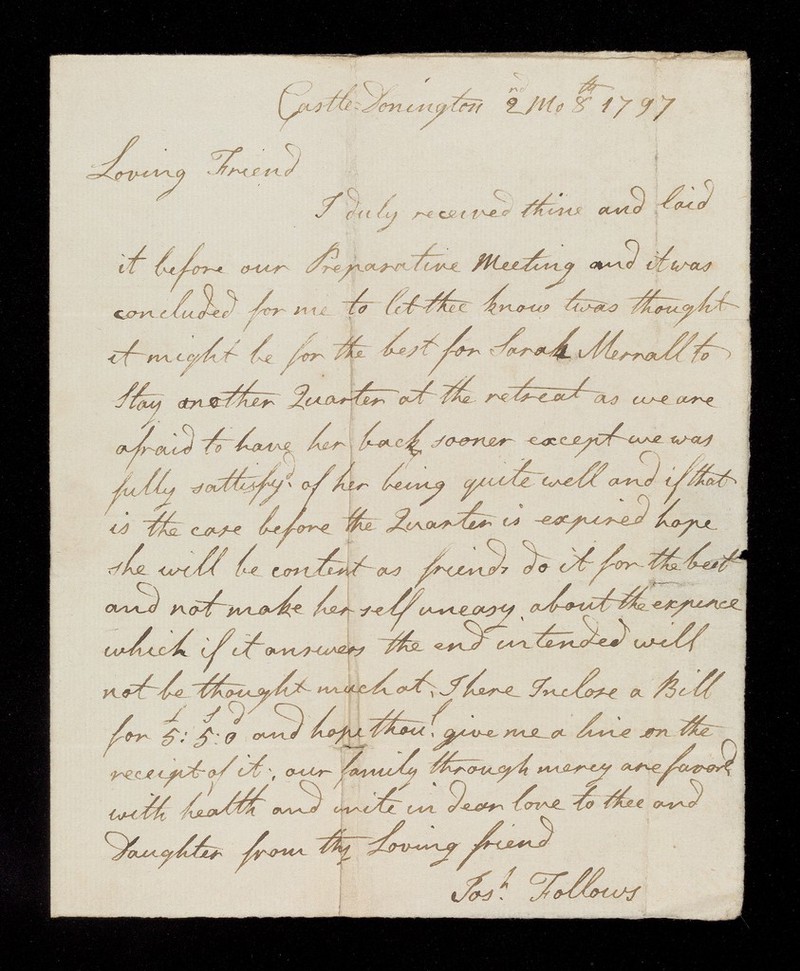 Castle-Donington 2nd Mo 8th 1797
Loving Friend
I duly received thine and laid
it before our Preparative Meeting and it was
concluded for me to let thee know twas thought
it might be for the best for Sarah Merrall to
Stay another Quarter at the retreat as we are
afraid to have her back sooner except we was
fully sattisfy'd of her being quite well and if that
is the case before the Quarter is expired hope
she will be content as friends do it for the best
and not make her self uneasy about the expence
which if it answers the end intended will
not be thought much at, I here Inclose a Bill
for £5: s5: d0 and hope thou'l give me a line on the
receipt of it, our family through mercy are favord
with health and unite in dear love to thee and
Daughter from thy Loving friend
Josh. Follows